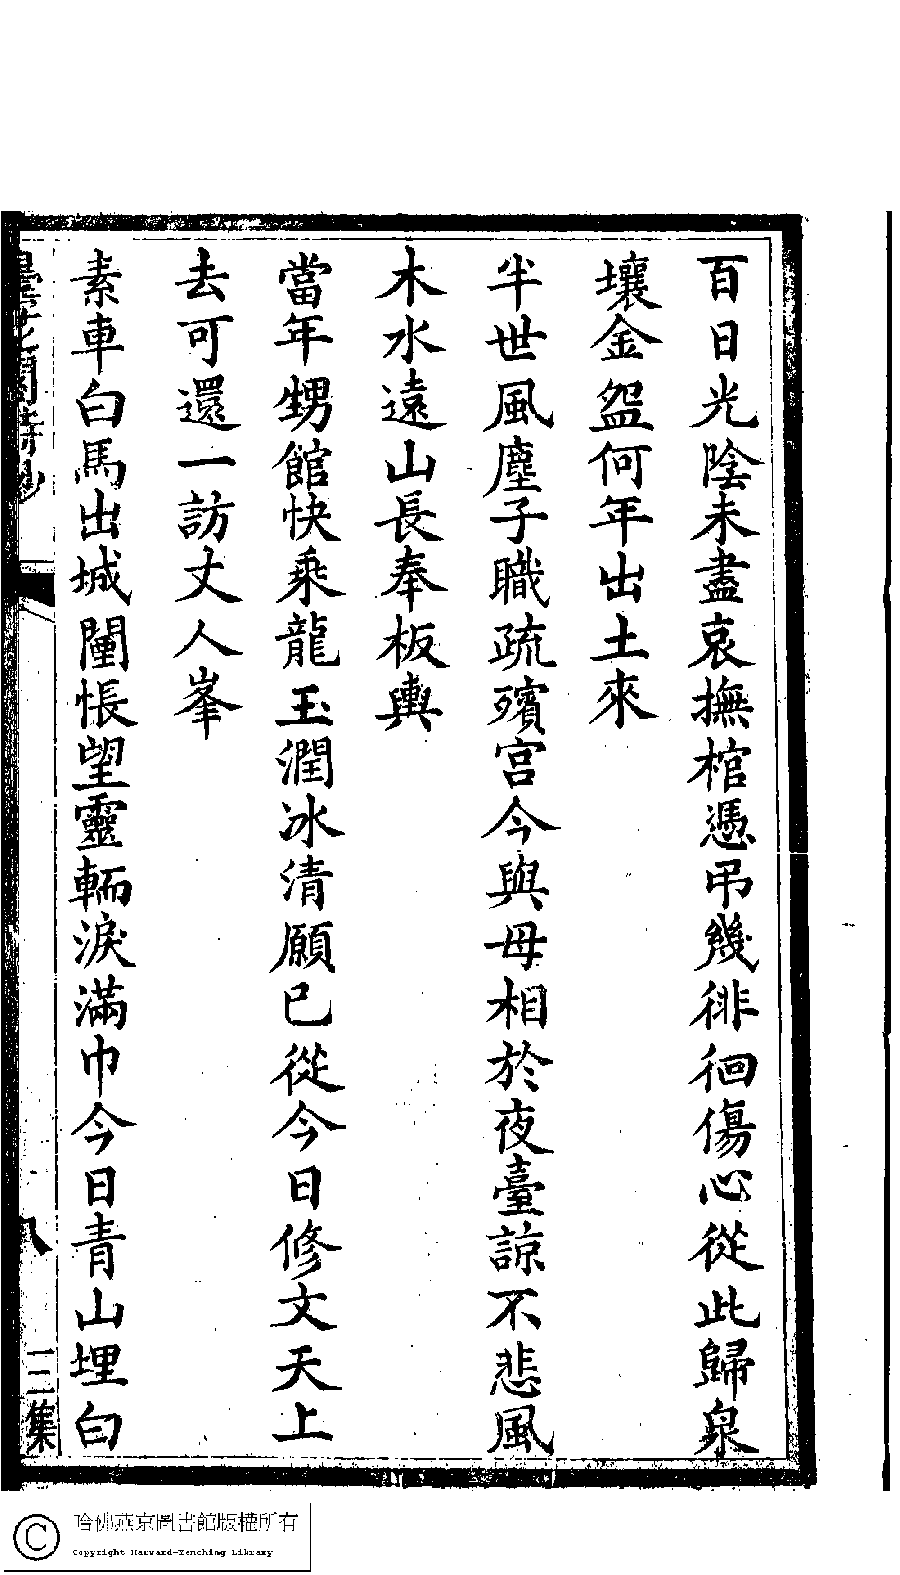 百日光陰未盡哀撫棺憑弔幾徘徊傷心從此歸泉
壤金盌何年出土來
半世風塵子職疏殯宮今與母相於夜臺諒不悲風
木水遠山長奉板輿
當年甥館快乘龍玉潤冰清願已從今日修文天上
去可還一訪丈人峯
素車白馬出城闉悵望靈輀淚滿巾今日青山埋白
曇花閣詩鈔
八
二集
哈佛燕京圖書館版權所有
Copyright Harvard-Yenching Library